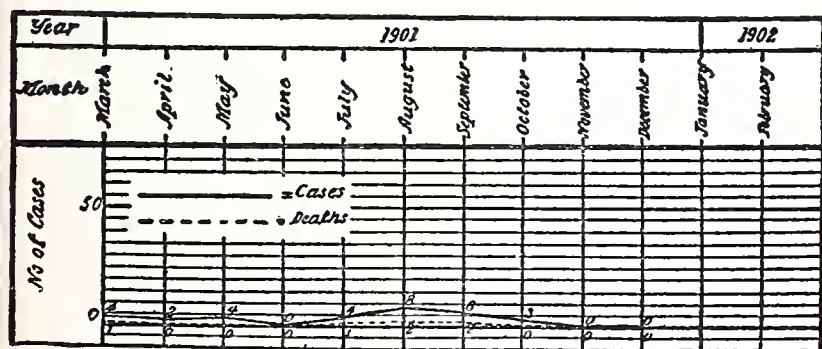 Year 1901 1902
Month March April. May June July August September October November December January February
No of Cases
50
= Cases
= Deaths
0
4 2 4 0 4 8 6 3 0 0
1 0 0 0 1 2 0 0 0